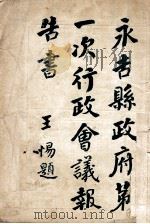 永吉縣政府第
一次行政會議報
告書
王惕題